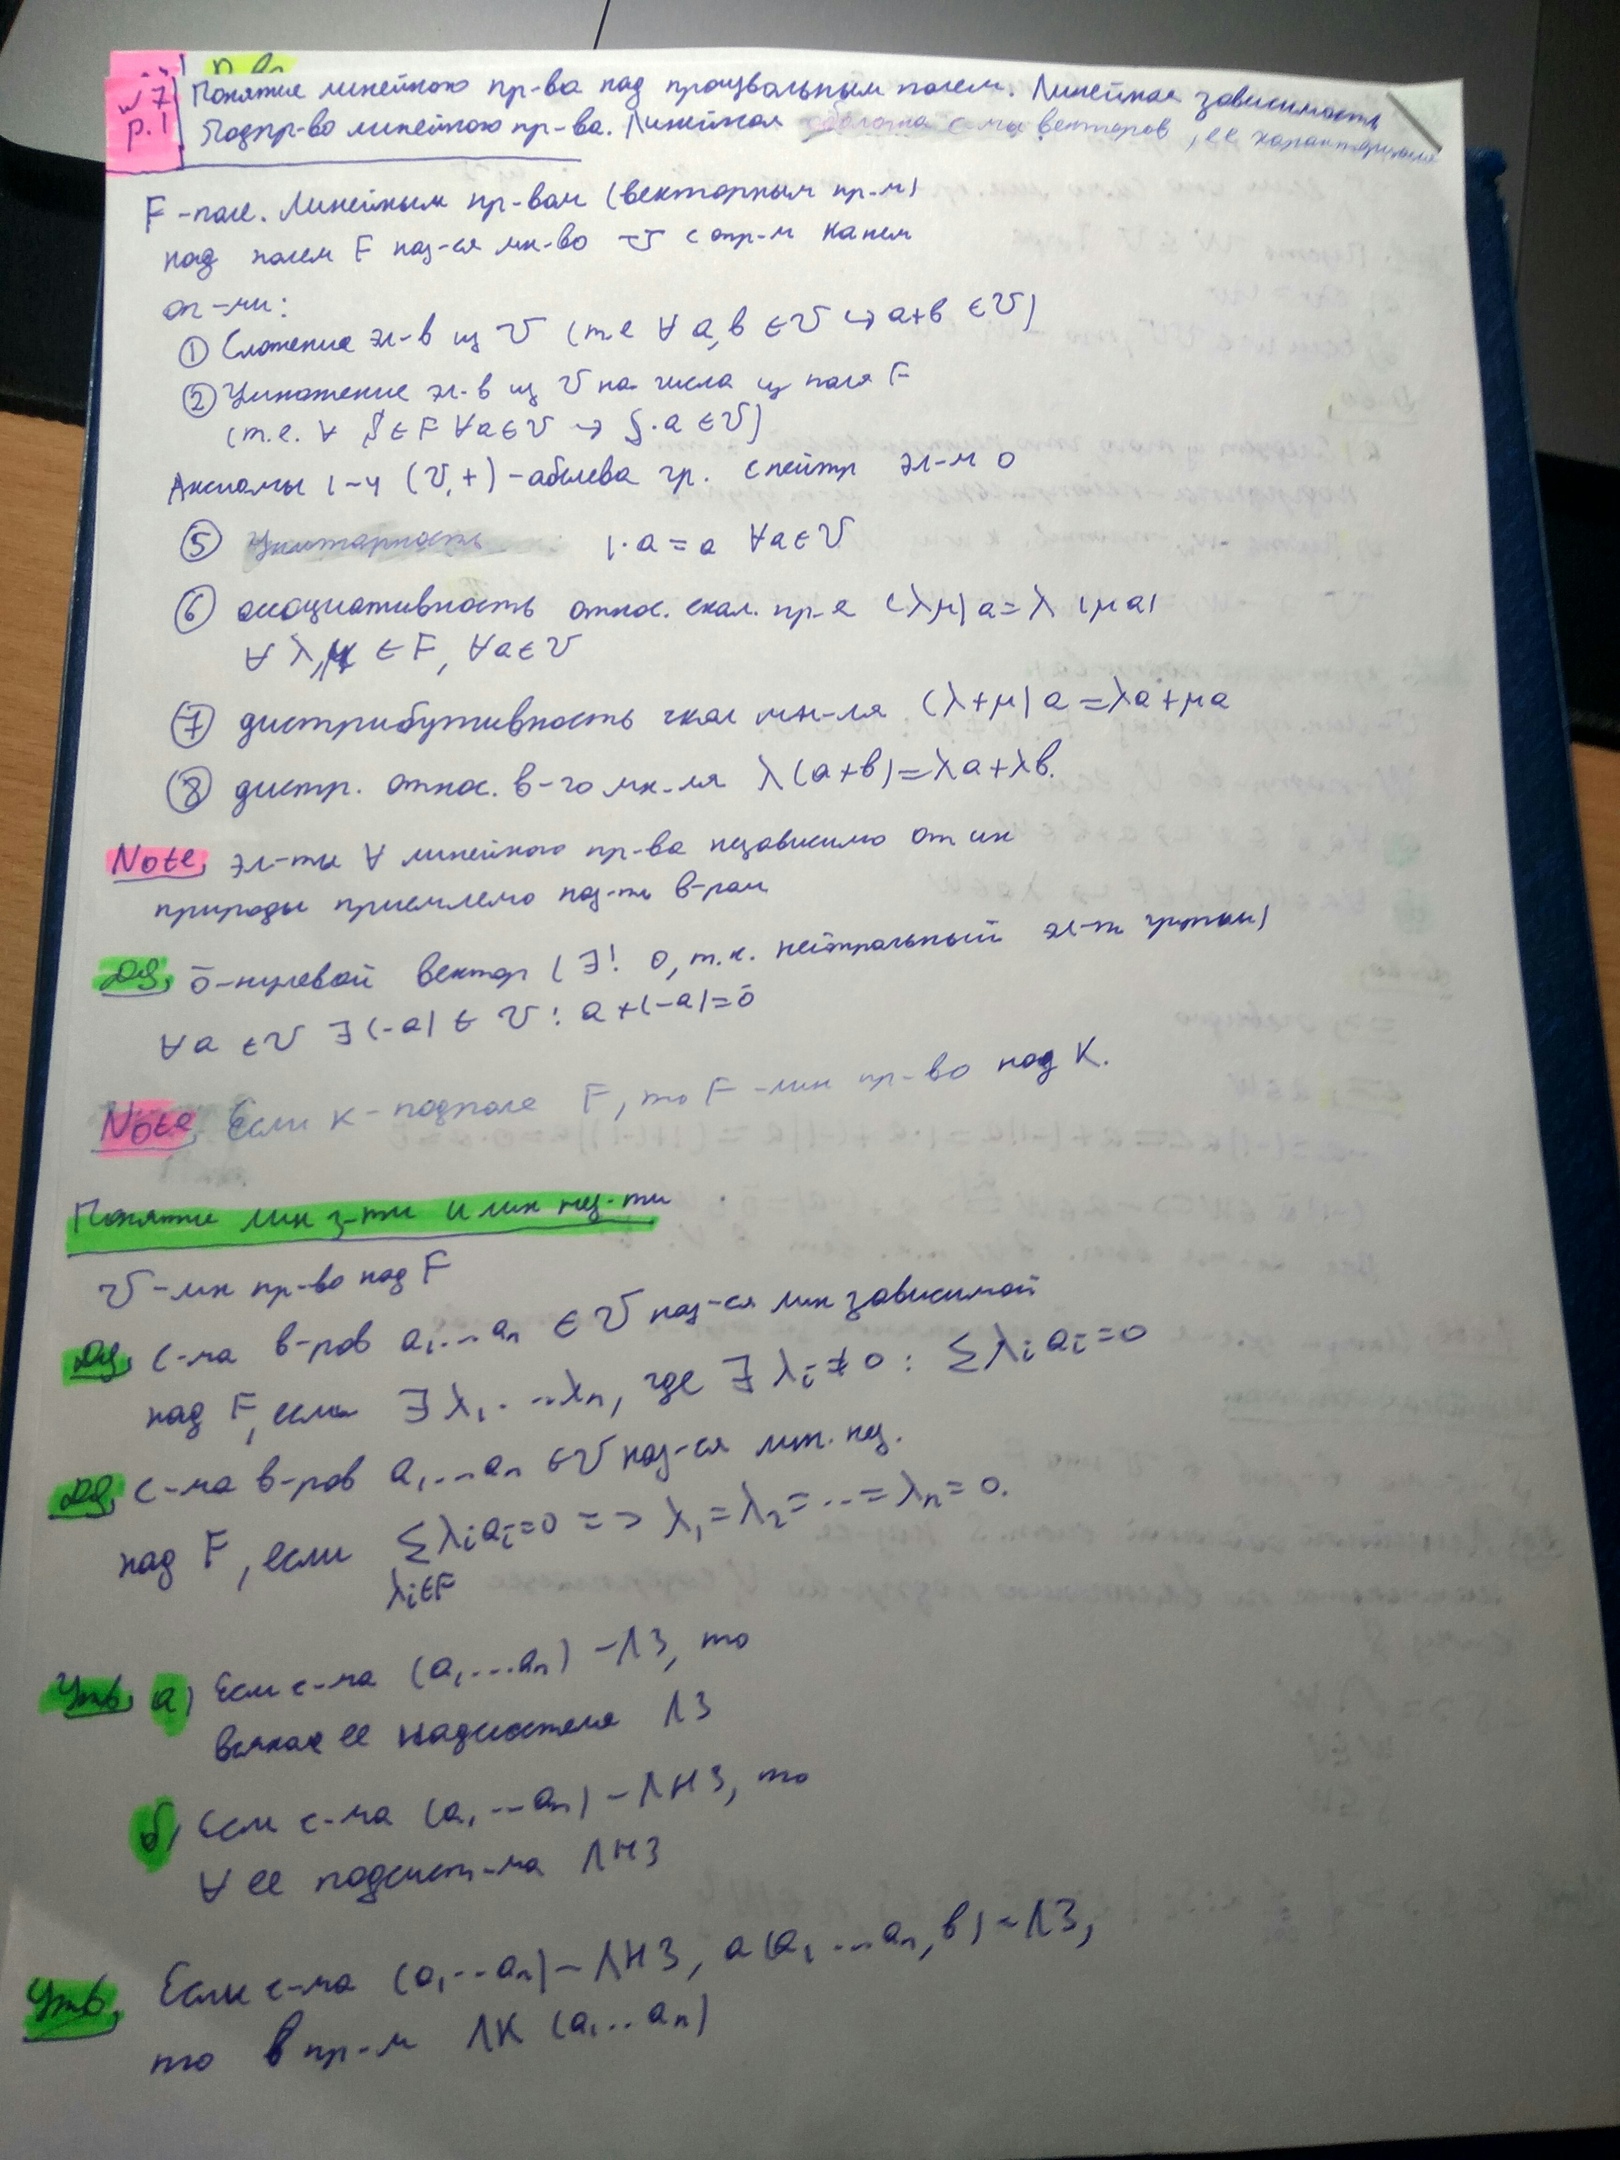 №7 Понятие линейного пр-ва над произвольным полем. Линейная зависимость
p.1 Подпр-во линейного пр-ва. Линейная оболочка с-мы векторов, ее
F-поле. Линейным пр-вом (векторным пр-м)
над полем F наз-ся мн-во V с опр-м на нем
оп-ми:
① Сложение эл-в из V (т.е ∀ a, b ∈ V ↪ a+b ∈ V)
② Умножение эл-в из V на числа из поля F
(т.е. ∀ ∈ F ∀a∈V → ·a ∈ V)
Аксиомы 1-4 (V,+) - абелева гр. с нейтр эл-м 0
⑤ Унитарность 1·a=a ∀a∈V
⑥ ассоциативность относ. скал. пр-я (λμ)a=λ(μa)
∀ λ,μ ∈ F, ∀a∈V
⑦ дистрибутивность скал мн-ля (λ+μ)a=λa+μa
⑧ дистр. относ. в-го мн-ля λ(a+b)=λa+λb.
Note, эл-ты ∀ линейного пр-ва независимо от их
природы приемлемо наз-ть в-рам
Df, ō-нулевой вектор (∃! 0, т.к. нейтральный эл-т группы)
∀a ∈V ∃(-a) ∈ V: a+(-a)=ō
Note, Если K-подполе F, то F-лин пр-во над K.
Понятие лин з-ти и лин нез-ти
V-лин пр-во над F
Df, с-ма в-ров a₁...aₙ ∈ V наз-ся лин зависимой
над F, если ∃ λ₁...λₙ, где ∃ λᵢ≠0: Σλᵢaᵢ=0
Df, с-ма в-ров a₁...aₙ ∈V наз-ся лин. нез.
над F, если Σλᵢaᵢ=0 => λ₁=λ₂=...=λₙ=0.
λᵢ∈F
Утв, а) Если с-ма (a₁...aₙ) - ЛЗ, то
всякая ее надсистема ЛЗ
б) Если с-ма (a₁...aₙ) - ЛНЗ, то
∀ ее подсист-ма ЛНЗ
Утв, Если с-ма (a₁...aₙ) - ЛНЗ, а (a₁...aₙ, b) - ЛЗ,
то b пр-м ЛК (a₁..aₙ)